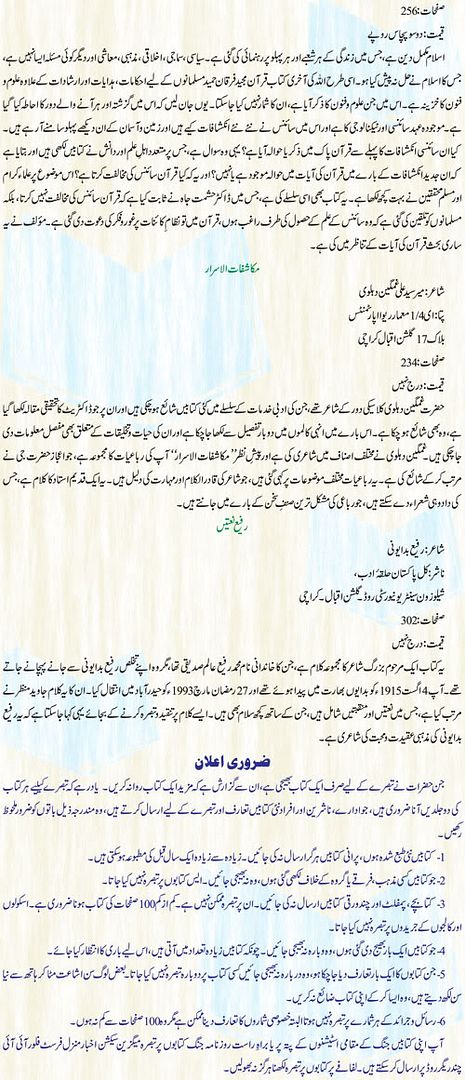 صفحات: 256
قیمت: دو سو پچاس روپے
اسلام مکمل دین ہے، جس میں زندگی کے ہر شعبے اور ہر پہلو پر رہنمائی کی گئی ہے۔ سیاسی، سماجی، اخلاقی، مذہبی، معاشی اور دیگر کوئی مسئلہ ایسا نہیں ہے،
جس کا اسلام نے حل نہ پیش کیا ہو۔ اسی طرح اللہ کی آخری کتاب قرآن مجید فرقان حمید مسلمانوں کے لیے احکامات، ہدایات اور ارشادات کے علاوہ علوم و
فنون کا خزینہ ہے۔ اس میں جن علوم و فنون کا ذکر آیا ہے، ان کا شمار نہیں کیا جا سکتا۔ یوں جان لیں کہ اس میں گزشتہ اور ہر آنے والے دور کا احاطہ کیا گیا
ہے۔ موجودہ عہد سائنسی اور ٹیکنالوجی کا ہے اور اس میں سائنس نے نئے نئے انکشافات کیے ہیں اور زمین و آسمان کے ان دیکھے پہلو سامنے آ رہے ہیں۔
کیا ان سائنسی انکشافات کا پہلے سے قرآن پاک میں ذکر یا حوالہ آیا ہے؟ یہی وہ سوال ہے، جس پر متعدد اہل علم اور دانش نے کتابیں لکھی ہیں اور بتایا ہے
کہ ان جدید انکشافات کے بارے میں قرآن کی آیات میں حوالہ موجود ہے یا نہیں؟ اور یہ کہ کیا قرآن سائنس کی مخالفت کرتا ہے؟ اس موضوع پر علماء کرام
اور مسلم محققین نے بہت کچھ لکھا ہے۔ یہ کتاب بھی اسی سلسلے کی ہے، جس میں ڈاکٹر حشمت جاہ نے ثابت کیا ہے کہ قرآن سائنس کی مخالفت نہیں کرتا، بلکہ
مسلمانوں کو تلقین کی گئی ہے کہ وہ سائنس کے علم کے حصول کی طرف راغب ہوں، قرآن میں تو نظام کائنات پر غور و فکر کی دعوت دی گئی ہے۔ مؤلف نے یہ
ساری بحث قرآن کی آیات کے تناظر میں کی ہے۔
مکاشفات الاسرار
شاعر: میر سید علی غمگین دہلوی
پتا: ای 1/4 معمار ریو اپارٹمنٹس
بلاک 17 گلشن اقبال کراچی
صفحات: 234
قیمت: درج نہیں
حضرت غمگین دہلوی کلاسیکی دور کے شاعر تھے، جن کی ادبی خدمات کے سلسلے میں کئی کتابیں شائع ہو چکی ہیں اور ان پر جو ڈاکٹریٹ کا تحقیقی مقالہ لکھا گیا
ہے، وہ بھی شائع ہو چکا ہے۔ اس بارے میں انہی کالموں میں دوبار تفصیل سے لکھا جا چکا ہے اور ان کی حیات و تخلیقات کے متعلق بھی مفصل معلومات دی
جا چکی ہیں۔ غمگین دہلوی نے مختلف اصناف میں شاعری کی ہے اور پیش نظر ”مکاشفات الاسرار“ آپ کی رباعیات کا مجموعہ ہے، جو اعجاز حضرت جی نے
مرتب کر کے شائع کی ہے۔ یہ رباعیات مختلف موضوعات پر کہی گئی ہیں، جو شاعر کی قادر الکلام اور مہارت کی دلیل ہیں۔ یہ ایک قدیم استاد کا کلام ہے، جس
کی داد وہی شعراء دے سکتے ہیں، جو رباعی کی مشکل ترین صنف سخن کے بارے میں جانتے ہیں۔
رفیع نعتیں
شاعر: رفیع بدایونی
ناشر: کل پاکستان حلقۂ ادب،
شیلوزون سینٹر یونیورسٹی روڈ۔ گلشن اقبال۔ کراچی
صفحات: 302
قیمت: درج نہیں
یہ کتاب ایک مرحوم بزرگ شاعر کا مجموعہ کلام ہے، جن کا خاندانی نام محمد رفیع عالم صدیقی تھا، مگر وہ اپنے تخلص رفیع بدایونی سے جانے پہچانے جاتے
تھے۔ آپ 4 اگست 1915 کو بدایوں بھارت میں پیدا ہوئے تھے اور 27 رمضان مارچ 1993 کو حیدرآباد میں انتقال کیا۔ ان کا یہ کلام جاوید منظر نے
مرتب کیا ہے، جس میں نعتیں اور منقبتیں شامل ہیں، جن کے ساتھ کچھ سلام بھی ہیں۔ ایسے کلام پر تنقید و تبصرہ کرنے کے بجائے یہی کہا جا سکتا ہے کہ یہ رفیع
بدایونی کی مذہبی عقیدت و محبت کی شاعری ہے۔
ضروری اعلان
جن حضرات نے تبصرے کے لیے صرف ایک کتاب بھیجی ہے، ان سے گزارش ہے کہ مزید ایک کتاب روانہ کریں۔ یاد رہے کہ تبصرے کیلیے ہر کتاب
کی دو جلدیں آنا ضروری ہیں، جو ادارے، ناشرین اور افراد نئی کتابیں تعارف اور تبصرے کے لیے ارسال کرتے ہیں، وہ مندرجہ ذیل باتوں کو ضرور ملحوظ
رکھیں۔
1- کتابیں نئی طبع شدہ ہوں، پرانی کتابیں ہرگز ارسال نہ کی جائیں۔ زیادہ سے زیادہ ایک سال قبل کی مطبوعہ ہو سکتی ہیں۔
2- جو کتابیں کسی مذہب، فرقے یا گروہ کے خلاف لکھی گئی ہوں، وہ نہ بھیجی جائیں۔ ایسی کتابوں پر تبصرہ نہیں کیا جاتا۔
3- کتابچے، پمفلٹ اور چند ورقی کتابیں ارسال نہ کی جائیں۔ ان پر تبصرہ ممکن نہیں ہے۔ کم از کم 100 صفحات کی کتاب ہونا ضروری ہے۔ اسکولوں
اور کالجوں کے جریدوں پر تبصرہ نہیں کیا جاتا۔
4- جو کتابیں ایک بار بھیج دی گئی ہوں، وہ دوبارہ نہ بھیجی جائیں۔ چونکہ کتابیں زیادہ تعداد میں آتی ہیں، اس لیے باری کا انتظار کیا جائے۔
5- جن کتابوں کا ایک بار تعارف دیا جا چکا ہو، وہ دوبارہ نہ بھیجی جائیں کسی کتاب پر دوبارہ تبصرہ نہیں کیا جاتا۔ بعض لوگ سن اشاعت مٹا کر ہاتھ سے نیا
سن لکھ دیتے ہیں، وہ ایسا کر کے اپنی کتاب ضائع نہ کریں۔
6- رسائل و جرائد کے ہر شمارے پر تبصرہ نہیں ہوتا البتہ خصوصی شماروں کا تعارف دینا ممکن ہے مگر وہ 100 صفحات سے کم نہ ہوں۔
آپ اپنی کتابیں جنگ کے مقامی اسٹیشنوں کے پتہ پر یا براہ راست روزنامہ جنگ کتابوں پر تبصرہ میگزین سیکشن اخبار منزل فرسٹ فلور آئی آئی
چندریگر روڈ پر ارسال کر سکتے ہیں۔ لفافے پر کتابوں پر تبصرہ لکھنا ہرگز نہ بھولیں۔